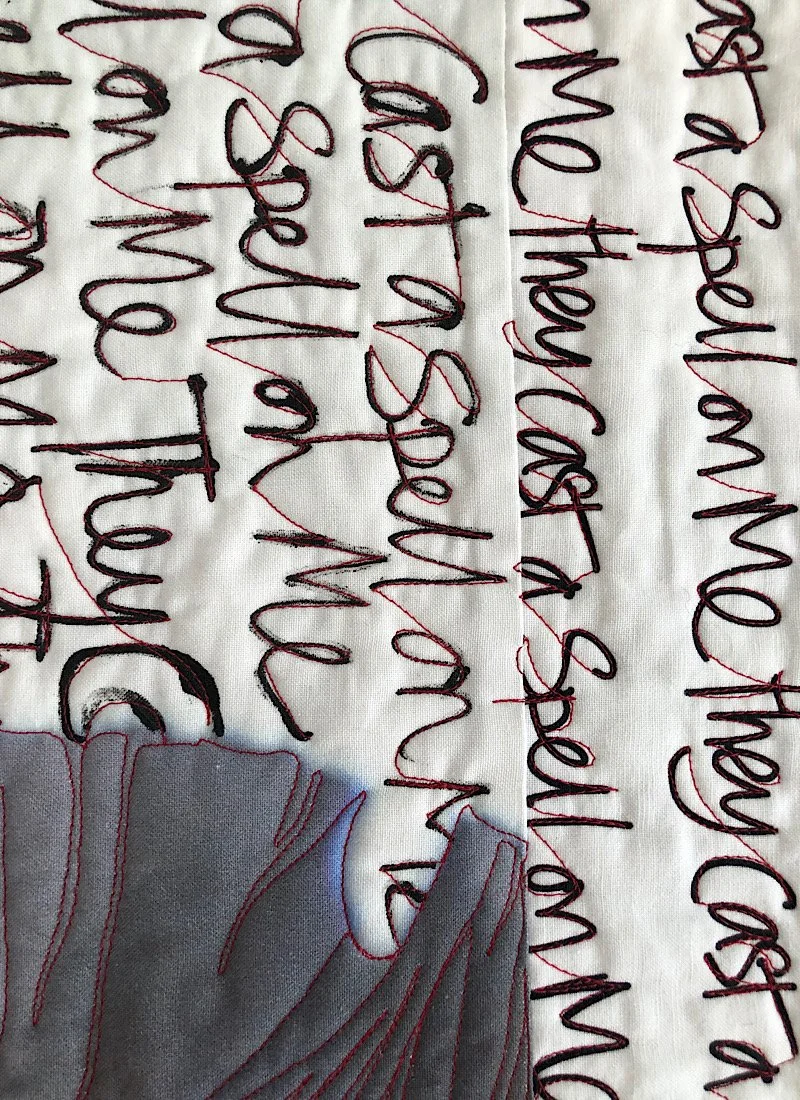 ast a Spell on Me they Cast a
n Me they Cast a Spell on Me
Cast a Spell on Me
a Spell on Me
on Me They Ca